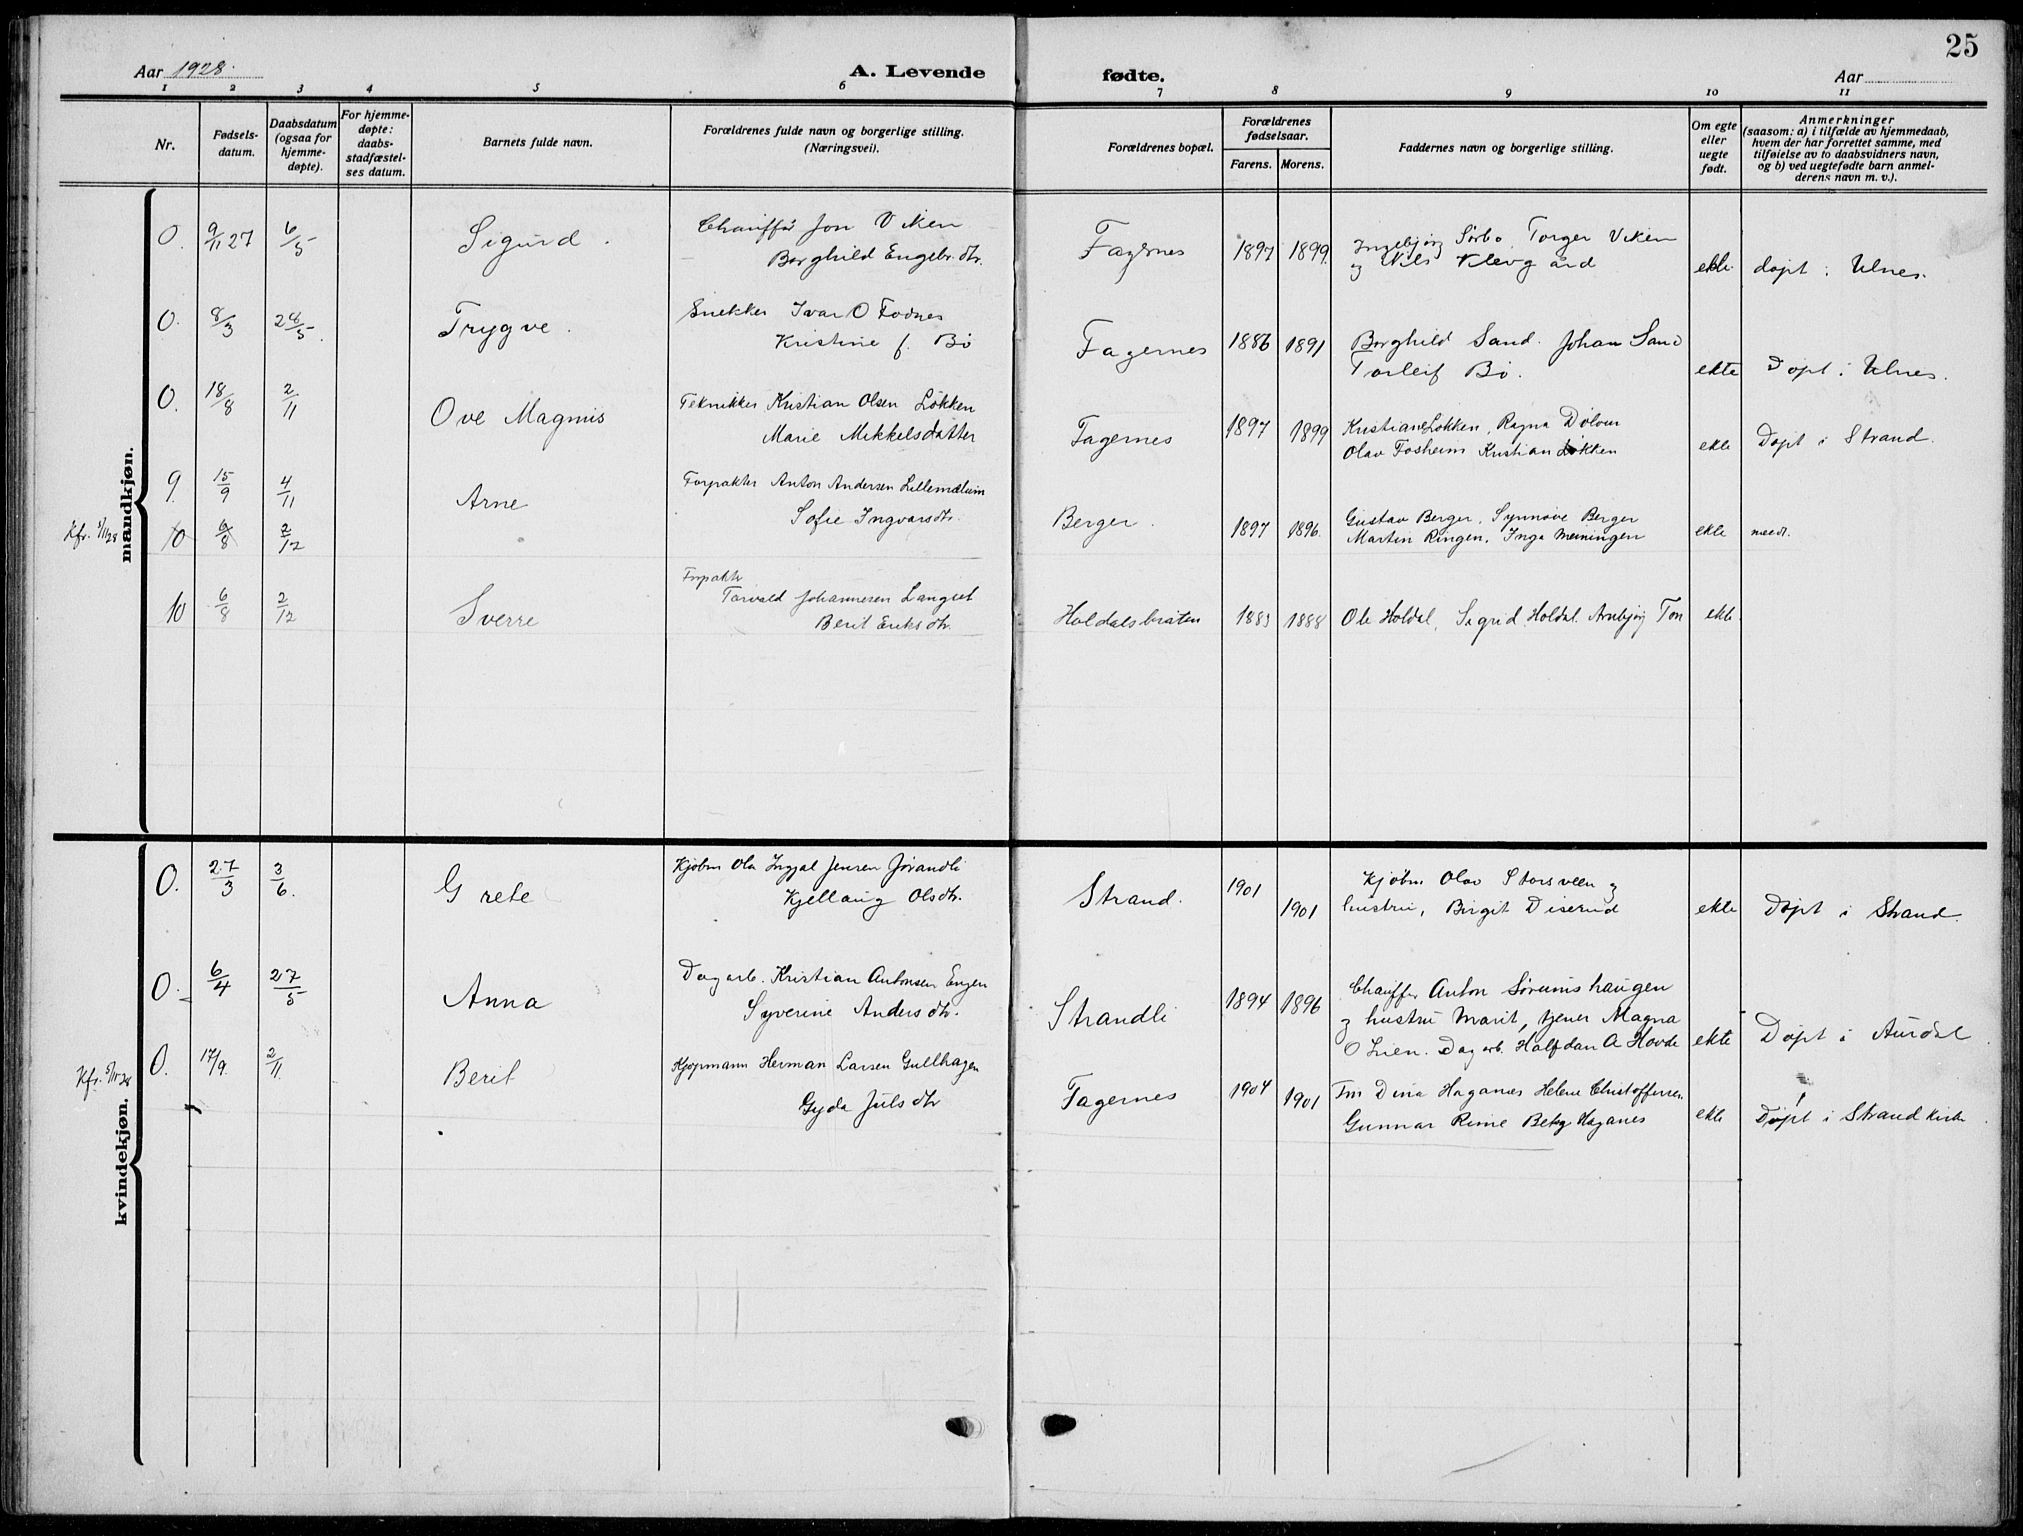 25
Aar 1928.
A. Levende fødte.
Aar
1 2 3 4 5 6 7 8 9 10 11
Nr.
Fødsels-
datum.
Daabsdatum
(ogsaa for
hjemme-
døpte).
For hjemme-
døpte:
daabs-
stadfæstel-
ses datum.
Barnets fulde navn.
Forældrenes fulde navn og borgerlige stilling.
(Næringsvei).
Forældrenes bopæl.
Forældrenes
fødselsaar.
Farens. Morens.
Faddernes navn og borgerlige stilling.
Om egte
eller
uegte
født.
Anmerkninger
(saasom: a) i tilfælde av hjemmedaab,
hvem der har forrettet samme, med
tilføielse av to daabsvidners navn,
og b) ved uegtefødte barn anmel-
derens navn m. v.).
mandkjøn.
0. 9/11 27 6/5 Sigurd.
Chauffør Jon Viken
Borghild Engebr.dtr.
Fagernes 1897 1899.
Ingebjørg Sørbo, Torger Viken
og Nils Klevgård
ekte. døpt i Ulnes.
0. 8/3 28/5. Trygve.
Snekker Ivar O Fodnes
Kristine f. Bø
Fagernes 1886 1891
Borghild Sand. Johan Sand
Torleif Bø.
ekte Døpt i Ulnes.
0. 18/8 2/11 Ove Magnus
Tekniker Kristian Olsen Løkken
Marie Mikkelsdatter
Fagernes 1897 1899
Kristiane Løkken, Ragna Dølven
Olav Fosheim Kristian Løkken
ekte Døpt i Strand.
9. 15/9 4/11 Arne
Forpakter Anton Andersen Lillemælum
Sofie Ingvarsdtr.
Berger. 1897 1896.
Gustav Berger, Synnøve Berger
Martin Ringen, Inga Meiningen
ekte
Kfr. 5/11 28 10 6/8 2/12
10 6/8 2/12 Sverre
Forpakter
Torvald Johannesen Langset
Berit Eriksdtr.
Holdalsbråten 1883 1888
Ole Holdal, Sigrid Holdal. Arnbjørg Ton
ekte
kvindekjøn.
0. 27/3 3/6. Grete
Kjøbm Ola Ingjal Jensen Jørandli
Kjellaug Olsdtr.
Strand. 1901 1901
Kjøbm. Olav Storsveen og
hustru, Birgit Diserud
ekte Døpt i Strand.
0. 6/4 27/5 Anna
Dagarb. Kristian Antonsen Engen
Syverine Andersdtr.
Strandli 1894 1896
Chauffør Anton Sørumshaugen
og hustru Marit, tjener Magna
O Lien. Dagarb. Halfdan A Hovde
ekte Døpt i Aurdal
Kfr. 5/11 28 0. 17/9. 2/11. Berit
Kjøpmann Herman Larsen Gullhagen
Gyda Julsdtr
Fagernes 1904 1901
Frk Dina Haganes Helene Christoffersen
Gunnar Rime Betsy Haganes
ekte Døpt i Strand Kirke